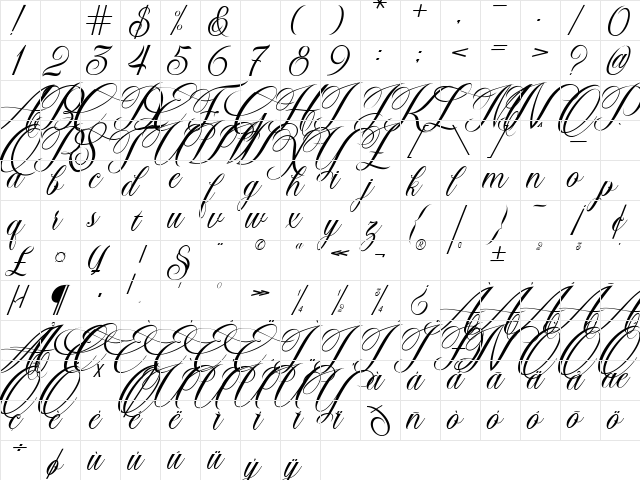 ! # $ % & ( ) * + , - . / 0
1 2 3 4 5 6 7 8 9 : ; < = > ? @
A B C D E F G H I J K L M N O P
Q R S T U V W X Y Z [ \ ] _
a b c d e f g h i j k l m n o p
q r s t u v w x y z { | } ~ ¡ ¢
£ ¤ ¥ ¦ § ¨ © ª « ¬ ® ¯ ± ² ³
µ ¶ · ¸ ¹ º » ¼ ½ ¾ ¿ À Á Â Ã Ä
Å Æ Ç È É Ê Ë Ì Í Î Ï Ð Ñ Ò Ó Ô
Õ Ö × Ø Ù Ú Û Ü Ý à á â ã ä å æ
ç è é ê ë ì í î ï ð ñ ò ó ô õ ö
÷ ø ù ú û ü ý ÿ